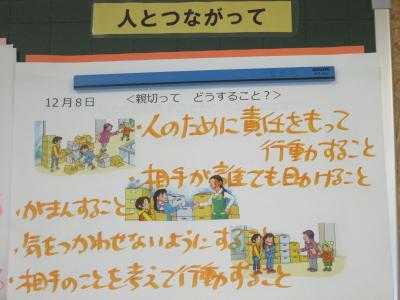 人とつながって
12月8日 <親切って どうすること?>
・人のために責任をもって
行動すること
・相手が誰でも助けること
・がまんすること
・気をつかわせないようにする
・相手のことを考えて行動すること